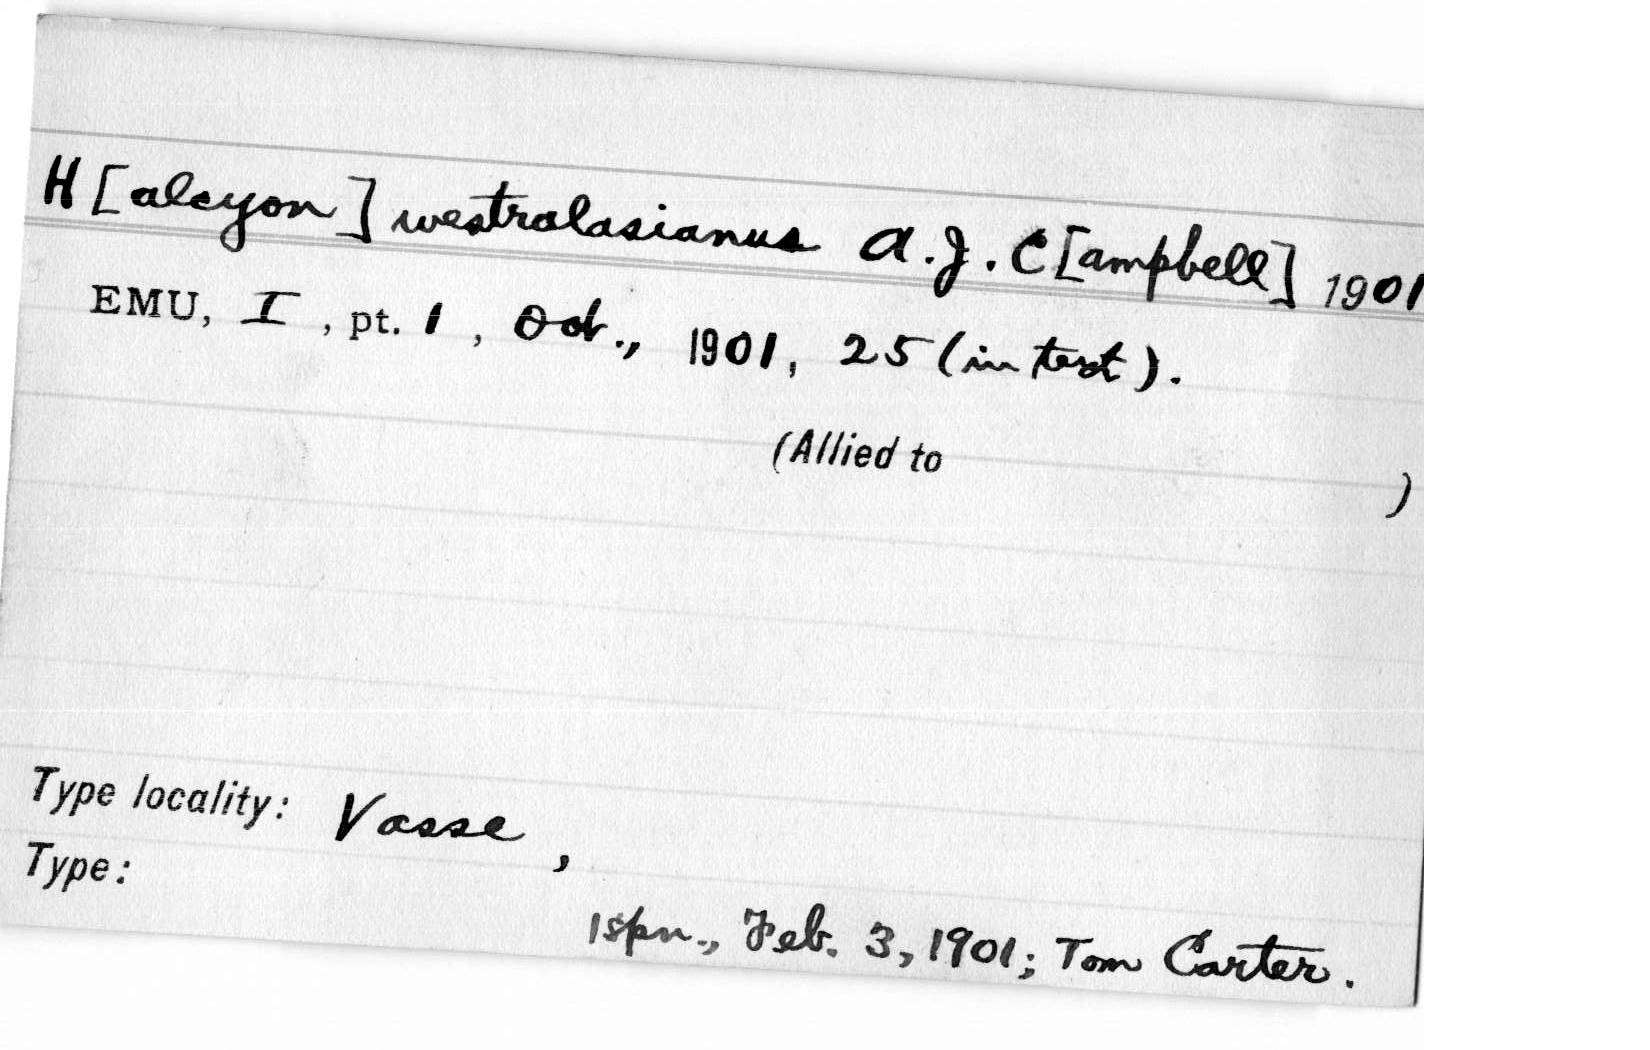 H[alcyon] westralasianus A.J.C[ampbell] 1901
EMU, I, pt. 1, Oct., 1901, 25 (in text).
(Allied to )
Type locality: Vasse,
Type:
1 spn., Feb. 3, 1901; Tom Carter.